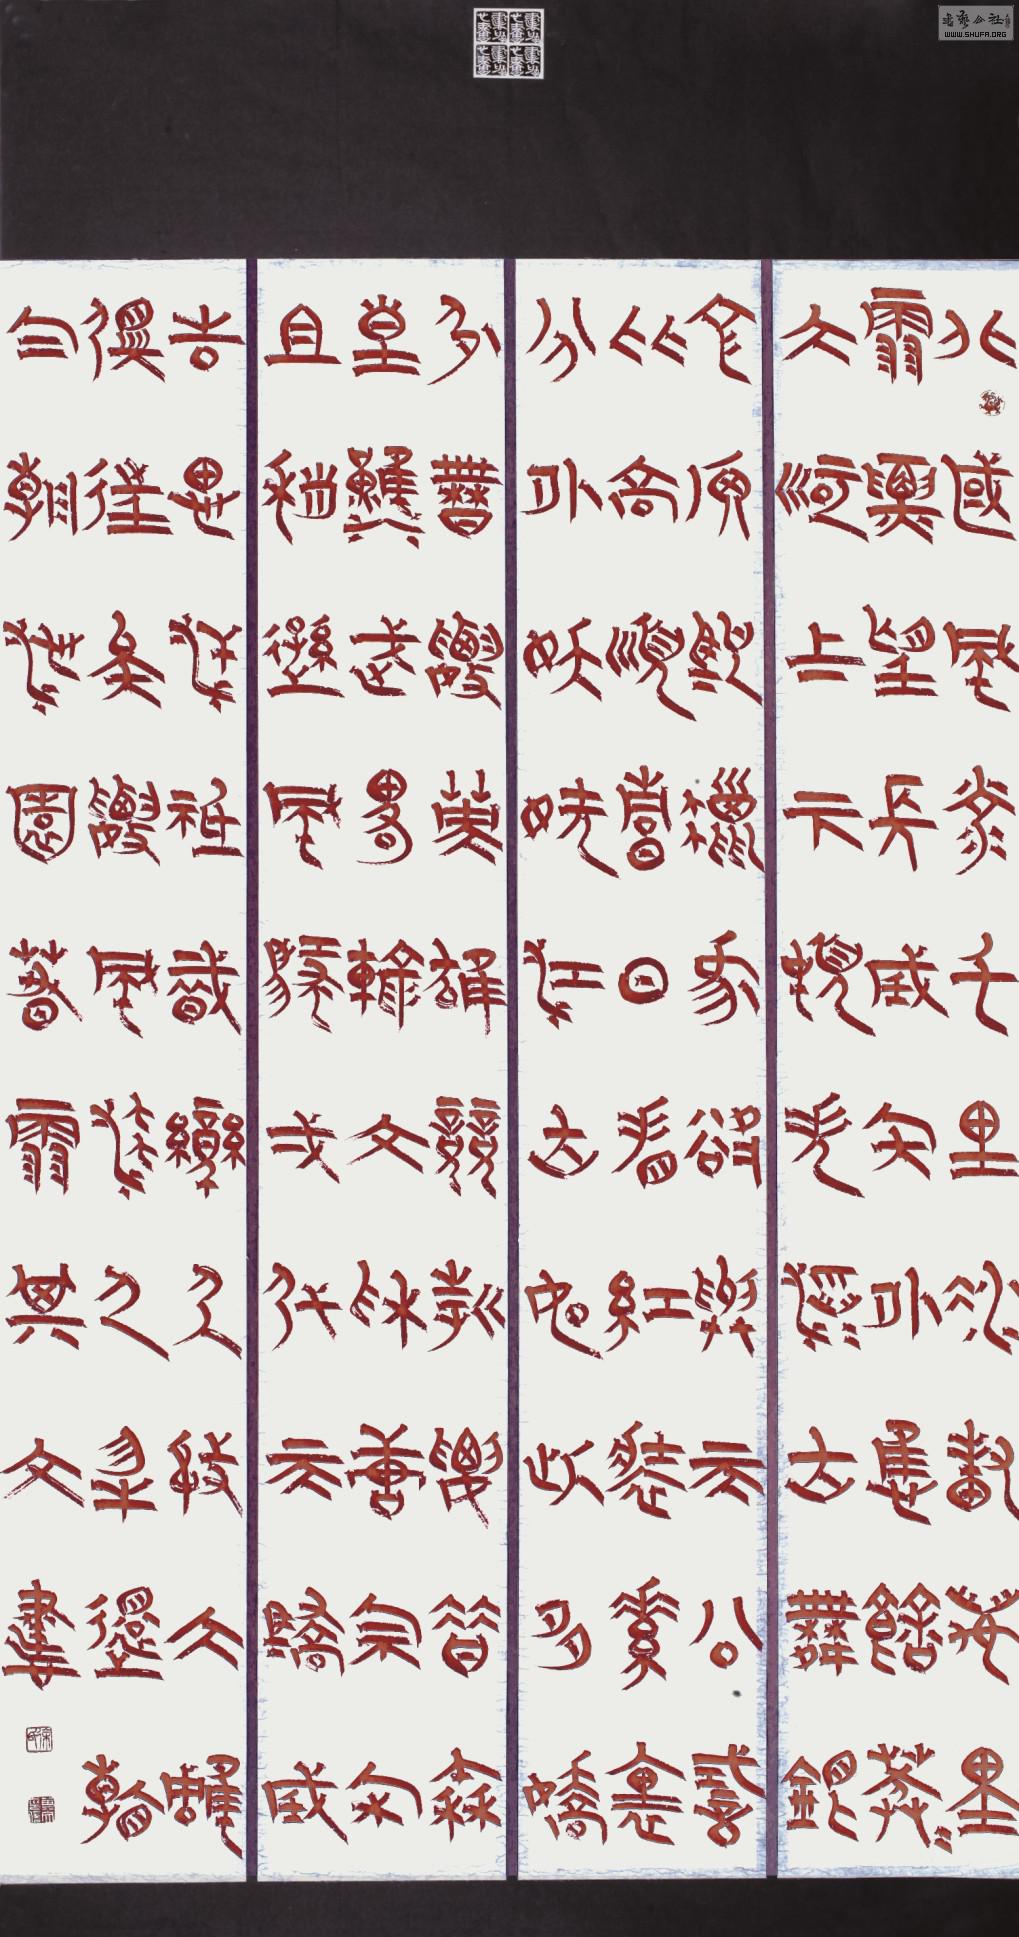 书艺公社
WWW.SHUFA.ORG
北國風光千里冰封萬里
雪飄望長城內外惟餘莽=
大河上下頓失滔山舞銀
蛇原馳蠟象欲與天公試
比高須晴日看紅裝素裹
分外妖嬈江山如此多嬌
引無數英雄競折腰惜秦
皇漢武略輸文采唐宗宋
祖稍遜風騷一代天驕成
吉思汗祗識彎弓射大雕
俱往矣數風流人物還看
今朝沁園春雪